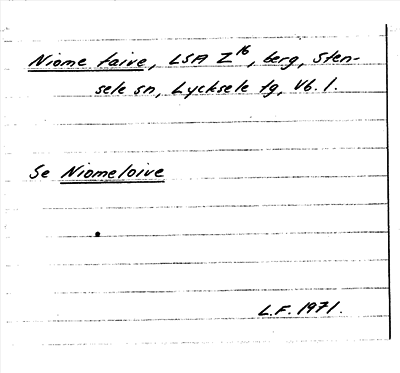 Niome faive, LSA Z16, berg, Sten-
sele sn, Lycksele tg, Vb. l.
Se Niomeloive
L.F. 1971.